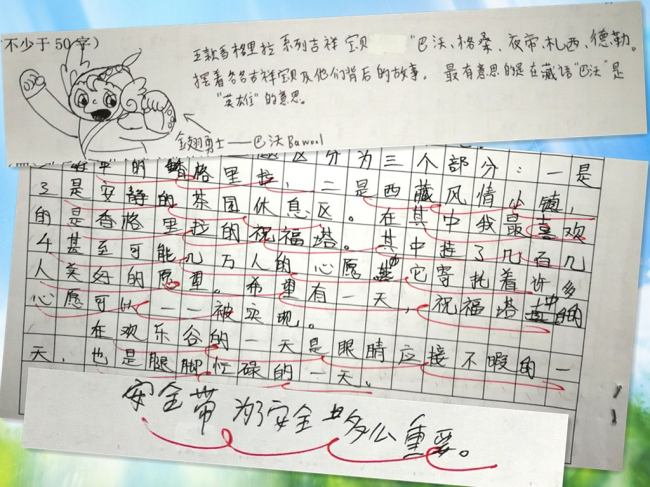 不少于50字）
五款香格里拉系列吉祥宝贝 "巴沃、格桑、夜帝、扎西、德勒。
摆着各各吉祥宝贝及他们背后的故事。最有意思的是在藏语"巴沃"是
"英雄"的意思。
金翅勇士——巴沃Bawool
区分为三个部分：一是
的香格里拉，二是西藏风情小镇，
3是安静的茶园休息区。在其中我最喜欢
的是香格里拉的祝福塔。其中挂了几百几
千甚至可能几万人的心愿 它寄托着许多
人美好的愿望。希望有一天，祝福塔中的
心愿可以一一被实现。
在欢乐谷的一天是眼睛应接不暇的一
天，也是腿脚忙碌的一天。
安全带为了安全 多么重要。